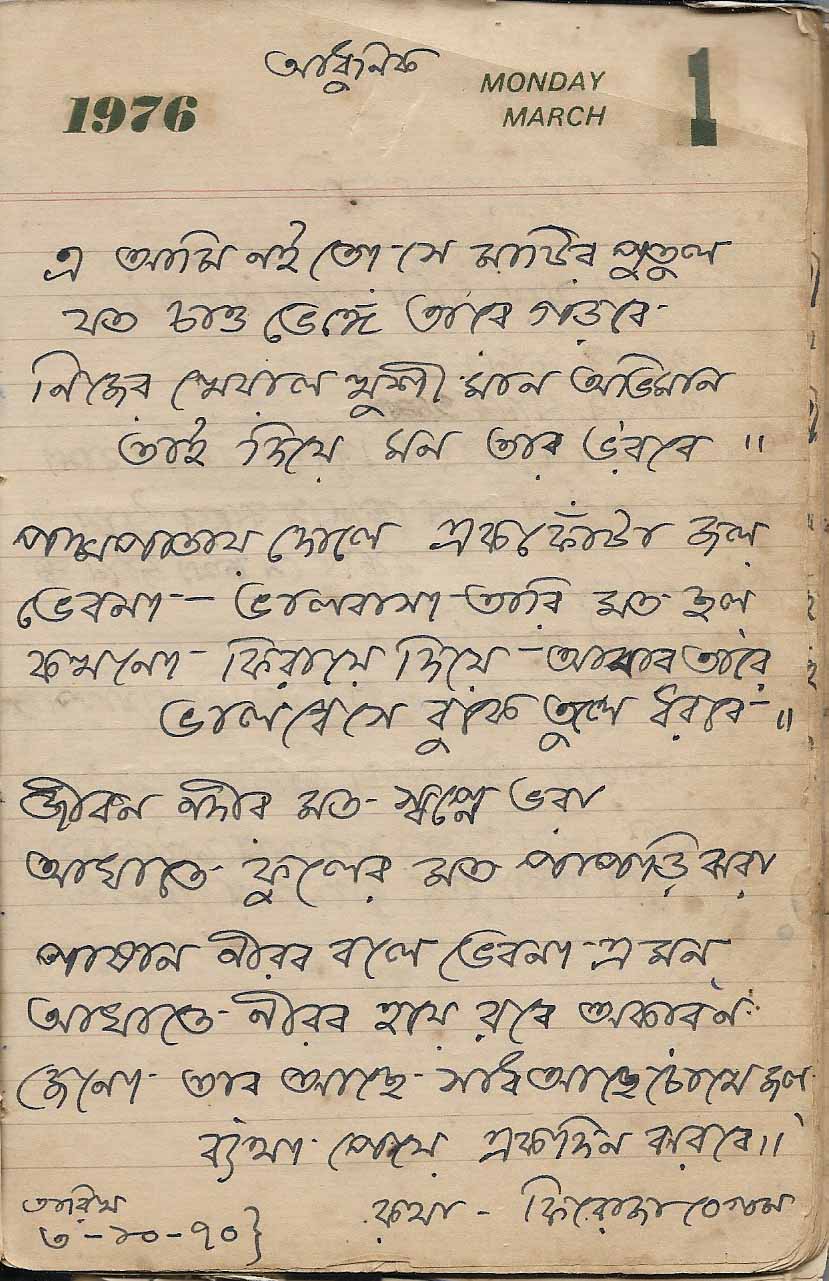 আধুনিক
1976
MONDAY
MARCH
1
এ আমি নই তো সে মাটির পুতুল
যত চাও ভেঙ্গে তারে গড়বে
নিজের খেয়াল খুশী মান অভিমান
তাই দিয়ে মন তার ভরবে ॥
পদ্মপাতায় দোলে একফোঁটা জল
ভেবনা — ভালবাসা তারি মত ছল
কখনো ফিরায়ে দিয়ে আবার তারে
ভালবেসে বুকে তুলে ধরবে ॥
জীবন নদীর মত স্বপ্নে ভরা
আঘাতে ফুলের মত পাপড়ি ঝরা
পাষান নীরব বলে ভেবনা এ মন
আঘাতে নীরব হয়ে রবে অকারন
জেনো তার আছে সাধ আছে চোখে জল
ব্যথা পেয়ে একদিন ঝরবে ॥
তারিখ
৩-১০-৭০}
কথা - ফিরোজা বেগম